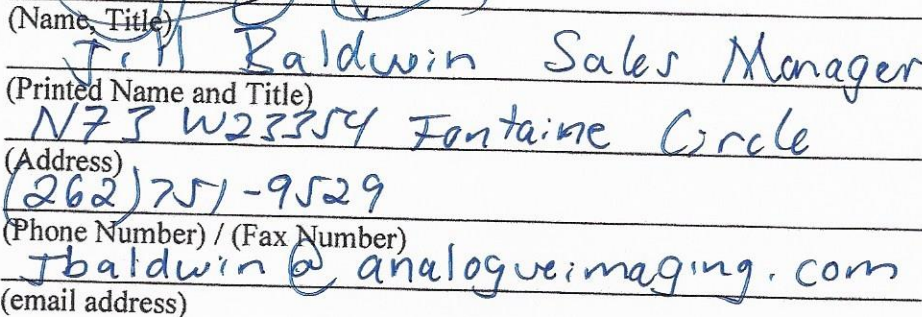 (Name, Title)
Jill Baldwin Sales Manager
(Printed Name and Title)
N73 W23354 Fontaine Circle
(Address)
(262)751-9529
(Phone Number) / (Fax Number)
Jbaldwin@analogueimaging.com
(email address)